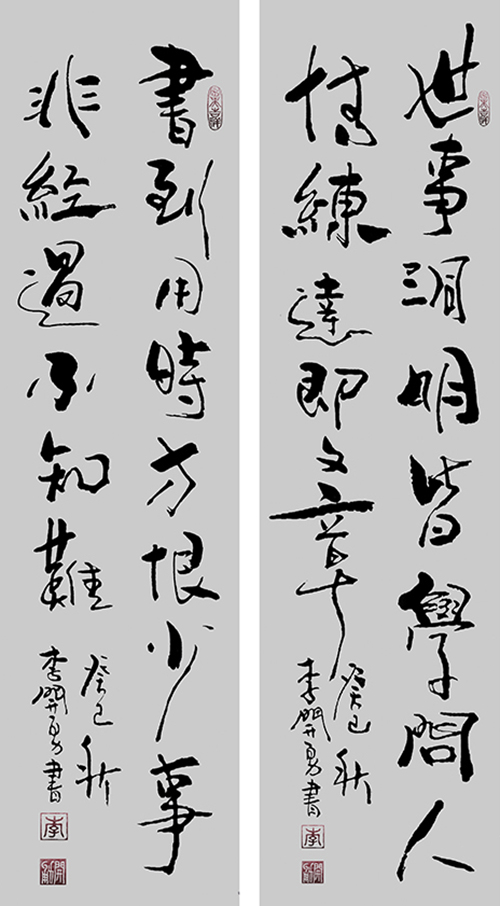 世事洞明皆學問人
情練達即文章
癸巳秋
李開勇書
李
書到用時方恨少事
非經過不知難
癸巳秋
李開勇書
李